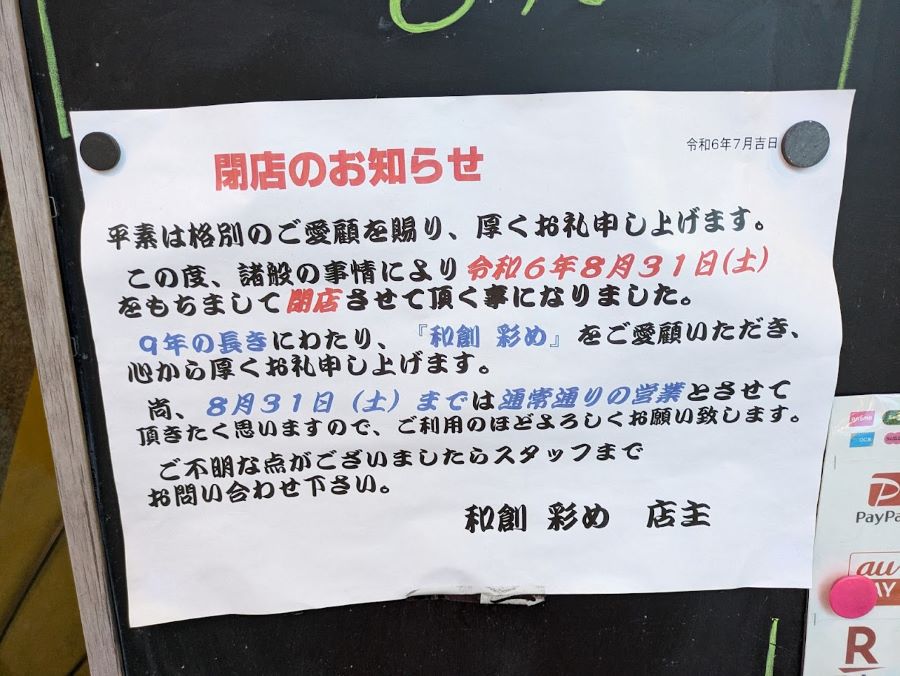 令和6年7月吉日
閉店のお知らせ
平素は格別のご愛顧を賜り、厚くお礼申し上げます。
この度、諸般の事情により令和6年8月31日(土)
をもちまして閉店させて頂く事になりました。
9年の長きにわたり、『和創 彩め』をご愛顧いただき、
心から厚くお礼申し上げます。
尚、8月31日(土)までは通常通りの営業とさせて
頂きたく思いますので、ご利用のほどよろしくお願い致します。
ご不明な点がございましたらスタッフまで
お問い合わせ下さい。
和創 彩め 店主
au
R